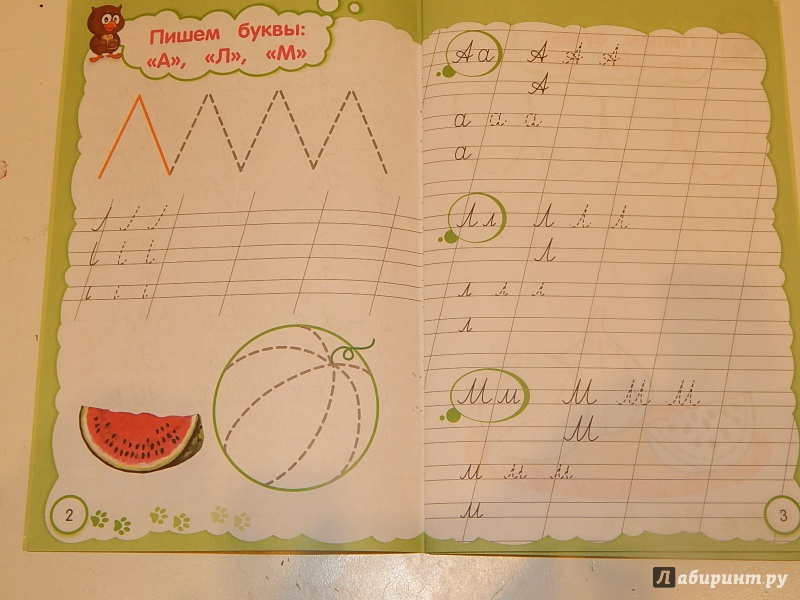 Пишем буквы:
«А», «Л», «М»
А а А А А
А
а а а
а
Л л Л Л Л
Л
л л л
л
М м М М М
М
м м м
м
2
3
Лабиринт.ру